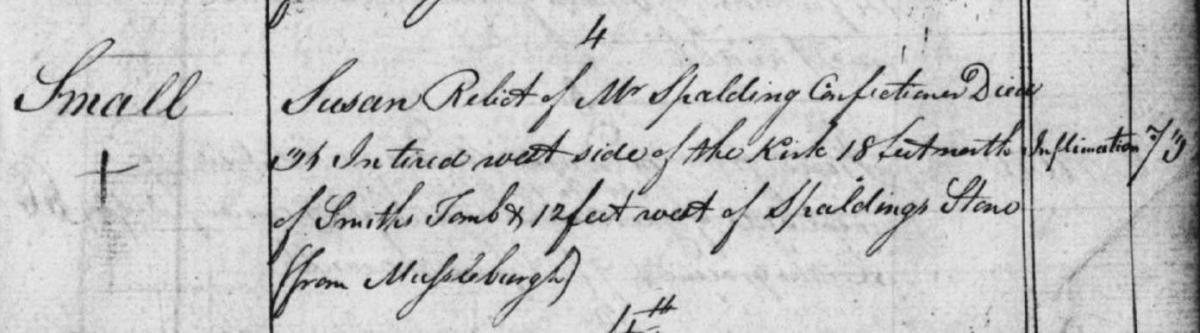 4
Small
Susan Relict of Mr Spalding Confectioner Died
31 Intired west side of the Kirk 18 feet north Inflimation 73
of Smiths Tomb & 12 feet west of Spaldings Stone
(from Mussleburgh)
4th